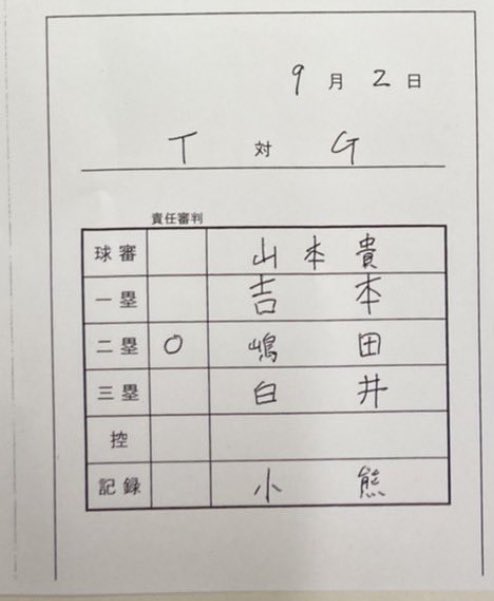 9月2日
T 対 G
責任審判
球審 山本貴
一塁 吉本
二塁 ○ 嶋田
三塁 白井
控
記録 小熊